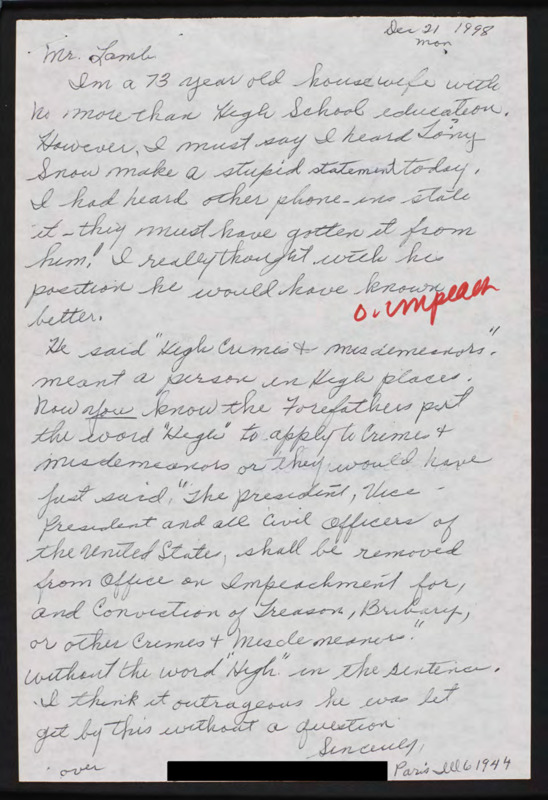 Dec 21, 1998
Mon
Mr. Lamb
Im a 73 year old housewife with
no more than High School education.
However, I must say I heard Tony
Snow make a stupid statement today.
I had heard other phone-ins state
it - they must have gotten it from
him! I really thought with his
position he would have known
better.
O. impeach
He said "High Crimes + misdemeanors".
meant a person in High places.
Now you know the Forefathers put
the word "High" to apply to Crimes +
misdemeanors or they would have
just said, "The president, Vice -
President and all Civil Officers of
the United States, shall be removed
from Office on Impeachment for,
and Conviction of Treason, Bribary,
or other Crimes + Misdemeaners."
without the word "High" in the sentence.
I think it outrageous he was let
get by this without a question
Sincerely,
over
Paris Ill 61944